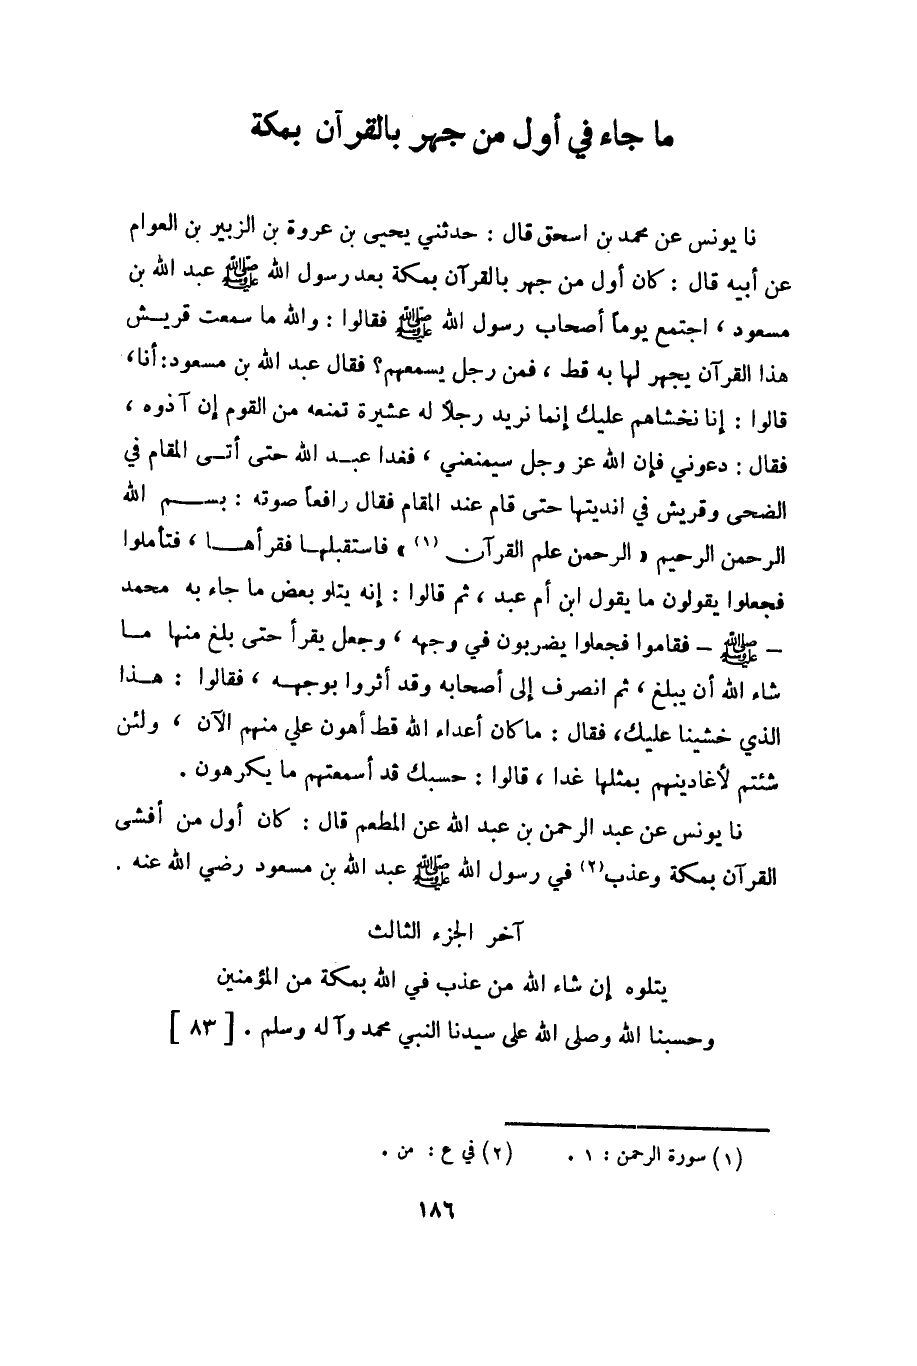 ما جاء في أول من جهر بالقرآن بمكة
نا يونس عن محمد بن اسحق قال : حدثني يحيى بن عروة بن الزبير بن العوام
عن أبيه قال : كان أول من جهر بالقرآن بمكة بعد رسول الله ﷺ عبد الله بن
مسعود ، اجتمع يوماً أصحاب رسول الله ﷺ فقالوا : والله ما سمعت قريش
هذا القرآن يجهر لها به قط ، فمن رجل يسمعهم؟ فقال عبد الله بن مسعود: أنا،
قالوا : إنا نخشاهم عليك إنما نريد رجلاً له عشيرة تمنعه من القوم إن آذوه ،
فقال : دعوني فإن الله عز وجل سيمنعني ، فغدا عبد الله حتى أتى المقام في
الضحى وقريش في انديتها حتى قام عند المقام فقال رافعاً صوته : بسم الله
الرحمن الرحيم « الرحمن علم القرآن (١) » فاستقبلها فقرأها ، فتأملوا
فجعلوا يقولون ما يقول ابن أم عبد ، ثم قالوا : إنه يتلو بعض ما جاء به محمد
– ﷺ – فقاموا فجعلوا يضربون في وجهه ، وجعل يقرأ حتى بلغ منها ما
شاء الله أن يبلغ ، ثم انصرف إلى أصحابه وقد أثروا بوجهه ، فقالوا : هذا
الذي خشينا عليك، فقال : ما كان أعداء الله قط أهون علي منهم الآن ، ولئن
شئتم لأغادينهم بمثلها غدا ، قالوا : حسبك قد أسمعتهم ما يكرهون .
نا يونس عن عبد الرحمن بن عبد الله عن المطعم قال : كان أول من أفشى
القرآن بمكة وعذب(٢) في رسول الله ﷺ عبد الله بن مسعود رضي الله عنه .
آخر الجزء الثالث
يتلوه إن شاء الله من عذب في الله بمكة من المؤمنين
وحسبنا الله وصلى الله على سيدنا النبي محمد وآله وسلم . [ ٨٣ ]
(١) سورة الرحمن : ١ . (٢) في ع : من .
١٨٦